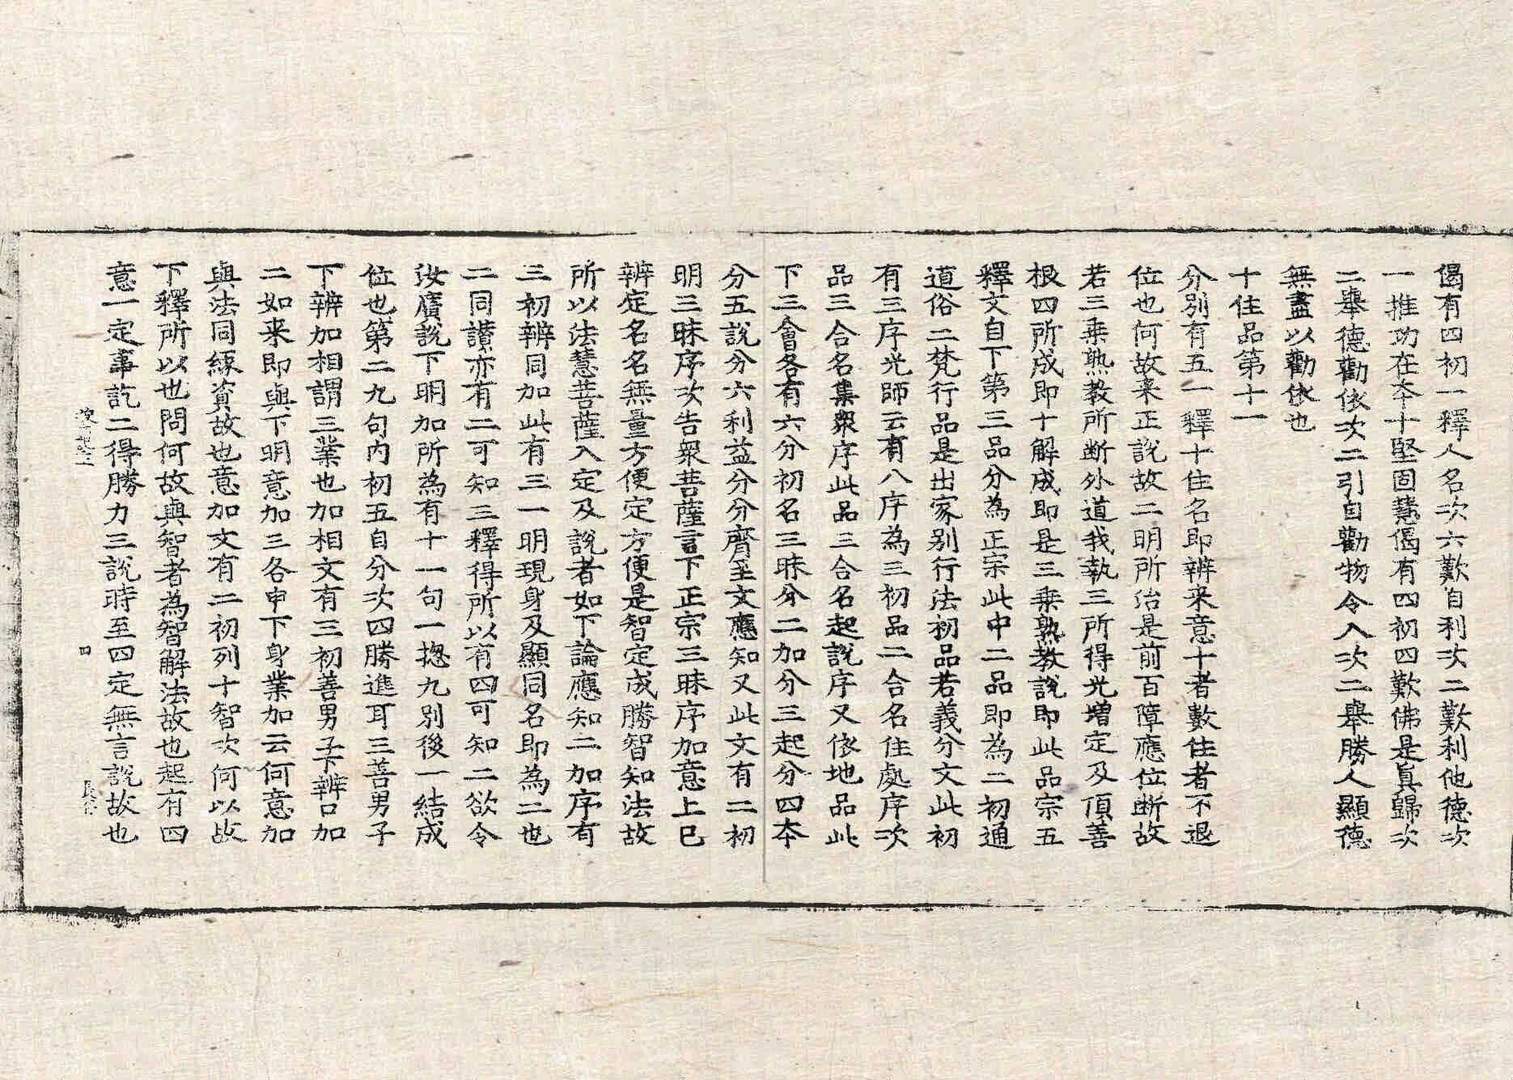 偈有四初一釋人名次六歎自利次二歎利他德次
一推功在夲十堅固慧偈有四初四歎佛是真歸次
二舉德勸依次二引自勸物令入次二舉勝人顯德
無盡以勸依也
十住品第十一
分別有五一釋十住名即辨来意十者數住者不退
位也何故来正說故二明所治是前百障應位断故
若三乗熟教所断外道我執三所得光増定及頂善
根四所成即十解成即是三乗熟教說即此品宗五
釋文自下第三品分為正宗此中二品即為二初通
道俗二梵行品是出家別行法初品若義分文此初
有三序光師云有八序為三初品二合名住處序次
品三合名集衆序此品三合名起說序又依地品此
下三會各有六分初名三昧分二加分三起分四夲
分五說分六利益分分齊至文應知又此文有二初
明三昧序次告衆菩薩言下正宗三昧序加意上已
辨定名名無量方便定方便是智定成勝智知法故
所以法慧菩薩入定及說者如下論應知二加序有
三初辨同加此有三一明現身及顯同名即為二也
二同讃亦有二可知三釋得所以有四可知二欲令
汝廣說下明加所為有十一句一揔九別後一結成
位也第二九句内初五自分次四勝進耳三善男子
下辨加相謂三業也加相文有三初善男子下辨口加
二如来即與下明意加三各申下身業加云何意加
與法同縁資故也意加文有二初列十智次何以故
下釋所以也問何故與智者為智解法故也起有四
意一定事訖二得勝力三說時至四定無言說故也
四